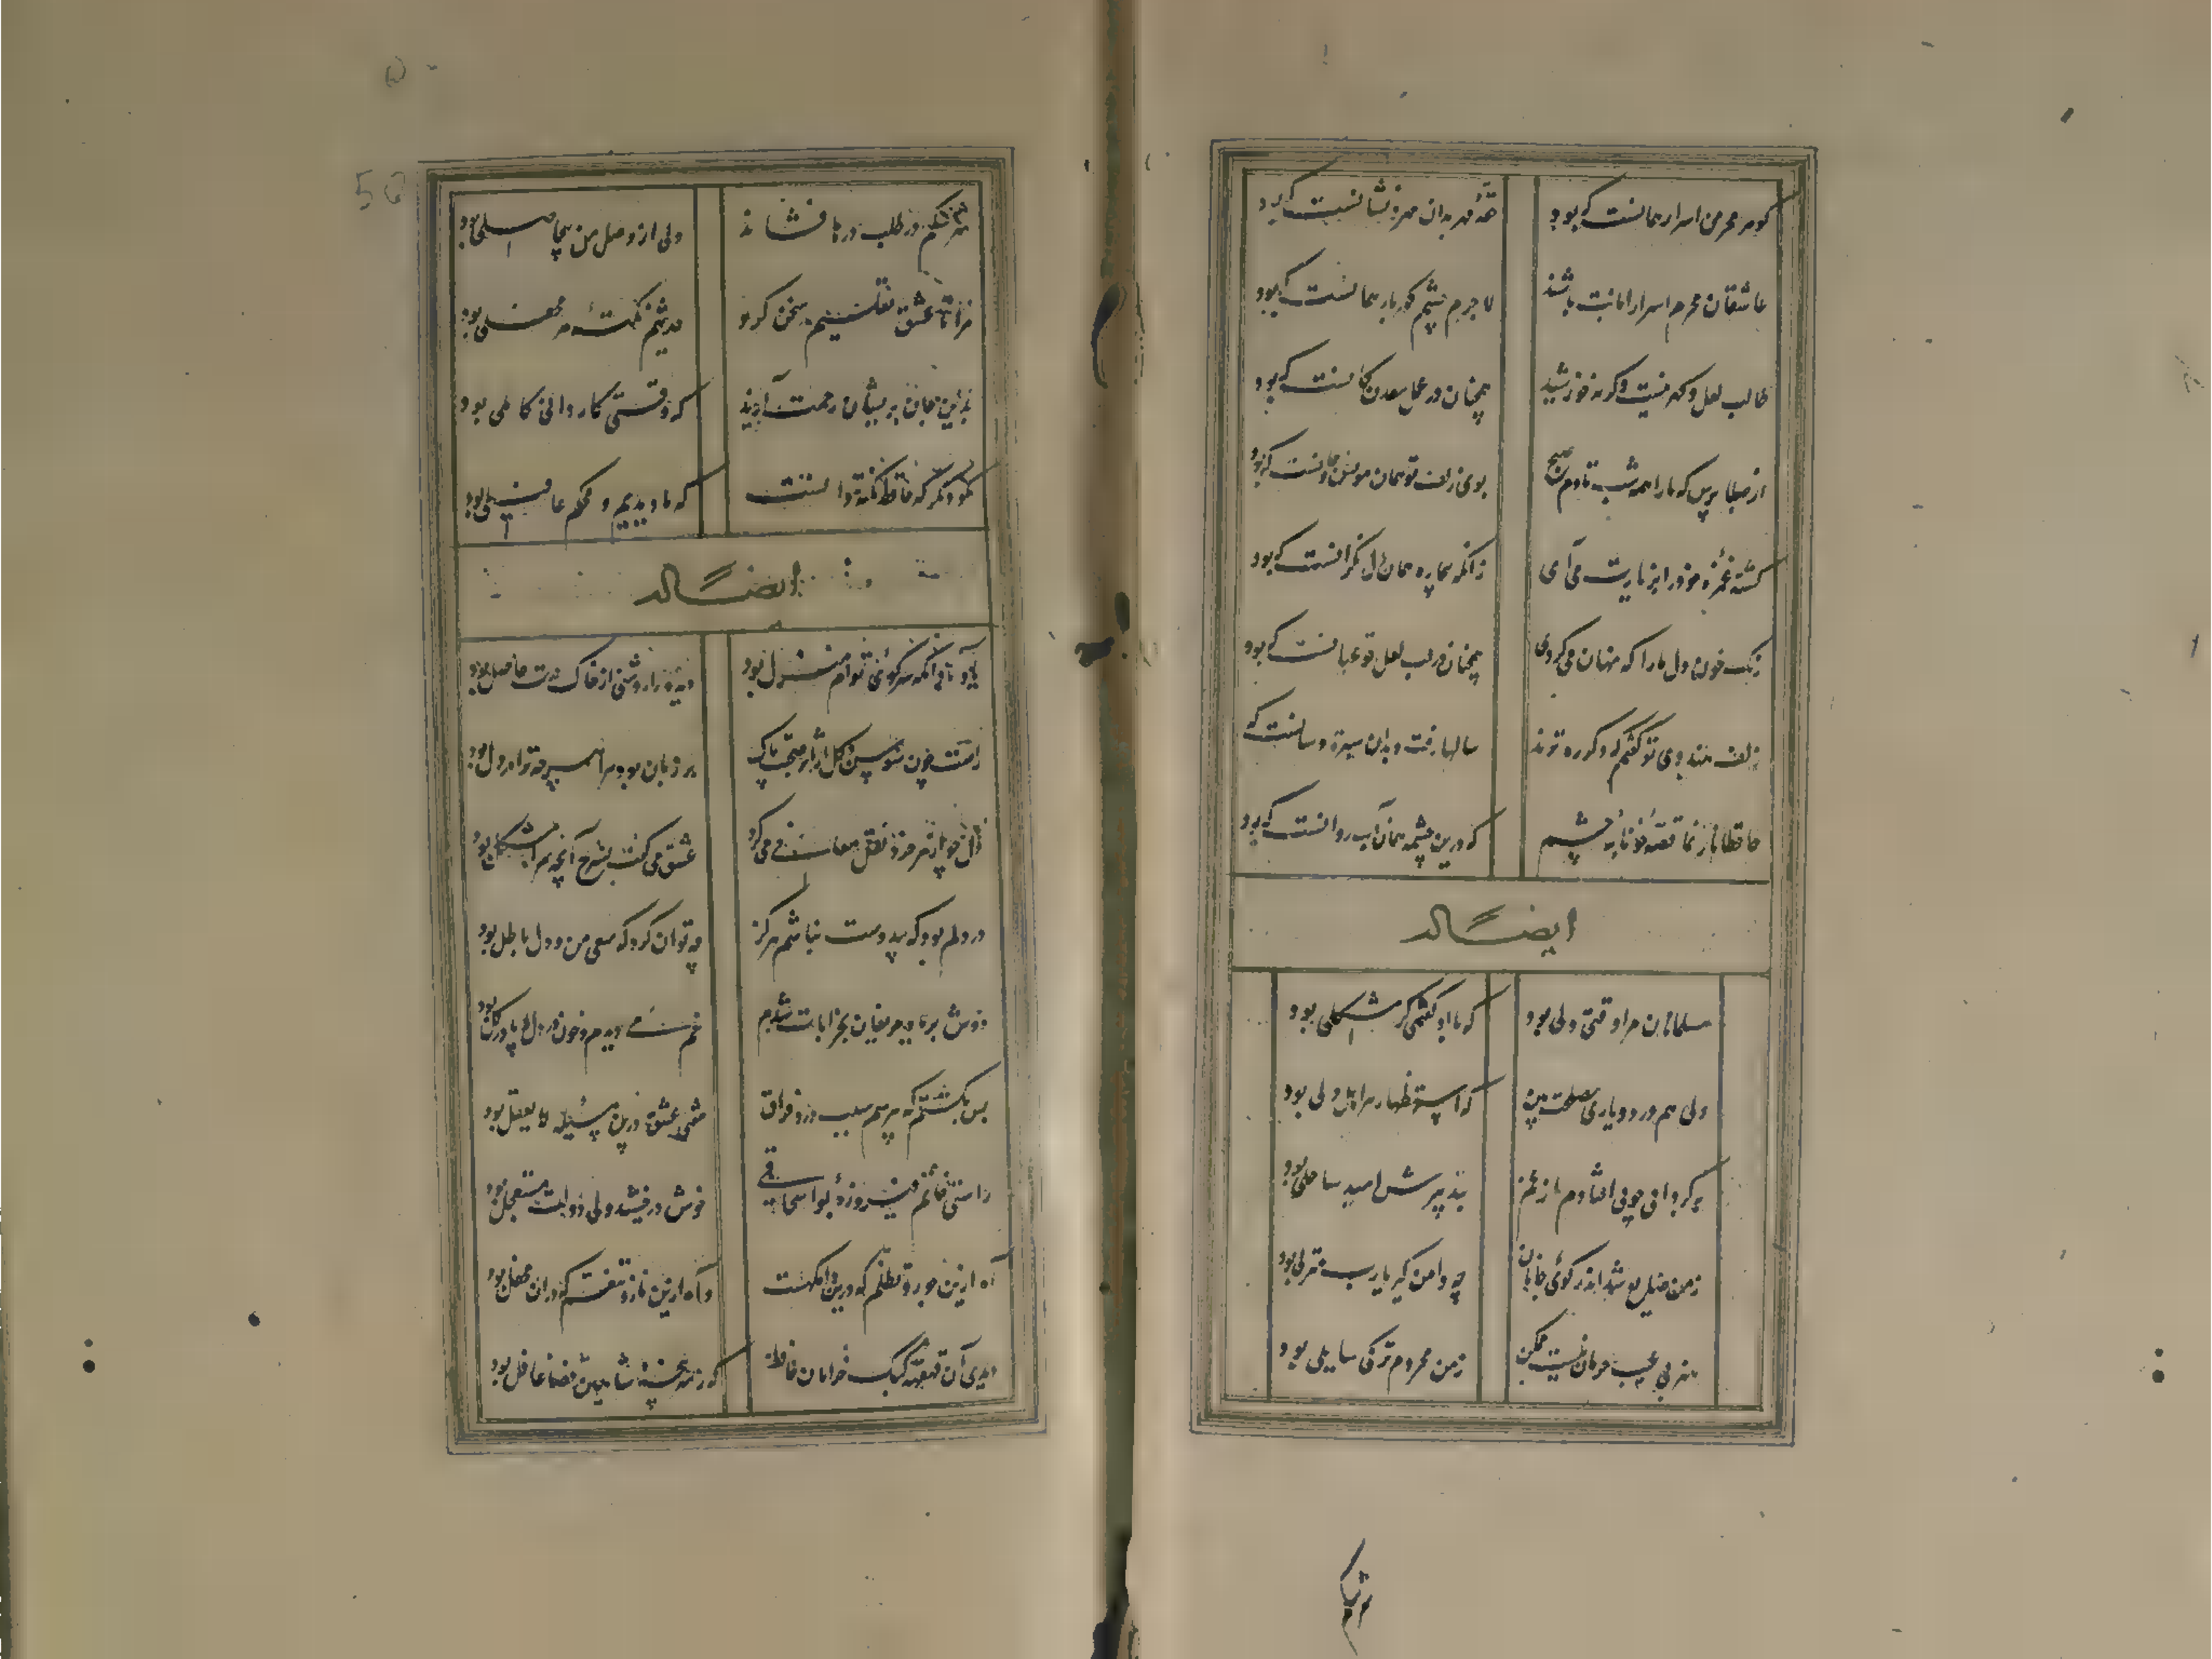 گوهر مخزن اسرار همانست که بود حقه مهر بدان مهر و نشانست که بود
عاشقان محرم اسرار امانت باشند لاجرم چشم گهربار همانست که بود
طالب لعل و گهر نیست وگرنه خورشید همچنان در عمل معدن کانست که بود
از صبا پرس که ما را همه شب تا دم صبح بوی زلف تو همان مونس جانست که بود
کشته غمزه خود را بزیارت می آی زانکه بیچاره همان دل نگرانست که بود
رنگ خون دل ما را که نهان می کردی همچنان در لب لعل تو عیانست که بود
زلف هندوی تو گفتم که دگر ره نزند سالها رفت و بدان سیرت و سانست که
حافظا باز نما قصه خونابه چشم که درین چشمه همان آب روانست که بود
ایضاً له
مسلمانان مرا وقتی دلی بود که با او گفتمی گر مشکلی بود
دلی هم درد و یاری مصلحت بین که استظهار هر اهل دلی بود
بگردابی چو می افتادم از غم بتدبیرش امید ساحلی بود
ز من ضایع شد اندر کوی جانان چه دامن گیر یارب منزلی بود
هنر بی عیب حرمان نیست لیکن ز من محروم تر کی سایلی بود
سرشکم در طلب درها فشاند ولی از وصل من بیحاصلی بود
مرا تا عشق تعلیم سخن کرد حدیثم نکته هر محفلی بود
بدین جان پریشان رحمت آرید که وقتی کاردانی کاملی بود
مگو دیگر که حافظ نکته دانست که ما دیدیم و محکم غافلی بود
ایضاً له
یاد باد آنکه سر کوی توام منزل بود دیده را روشنی از خاک درت حاصل بود
راست چون سوسن و گل از اثر صحبت پاک بر زبان بود مرا هر چه ترا در دل بود
دل چو از پیر خرد نقل معانی می کرد عشق می گفت بشرح آنچه برو مشکل بود
در دلم بود که بی دوست نباشم هرگز چه توان کرد که سعی من و دل باطل بود
دوش بر یاد حریفان بخرابات شدم خم می دیدم و خون در دل و پا در گل بود
بس بگشتم که بپرسم سبب درد فراق مفتی عشق درین مسئله لایعقل بود
راستی خاتم فیروزه بواسحاقی خوش درخشید ولی دولت مستعجل بود
آه ازین جور و تظلم که درین دامگهست وآه ازین ناز و تنعم که در آن محفل بود
دیدی آن قهقهه کبک خرامان حافظ که ز سرپنجه شاهین قضا غافل بود